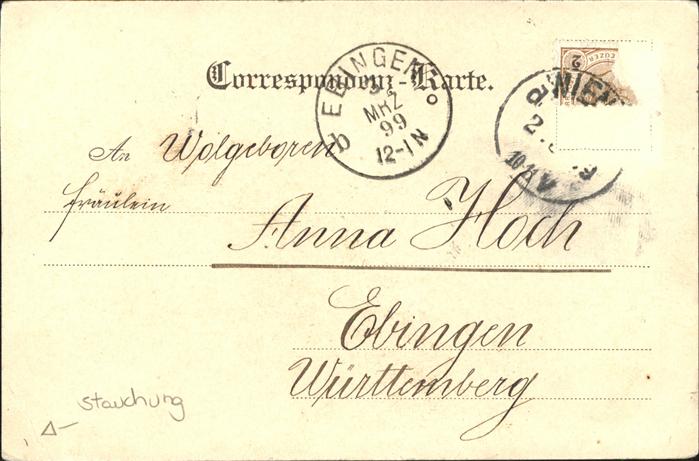 Correspondenz-Karte.
EBINGEN
MRZ
99
12-1 N
b
WIEN
2
2
An Wolgeboren
fräulein
Anna Hoch
Ebingen
Württemberg
stauchung